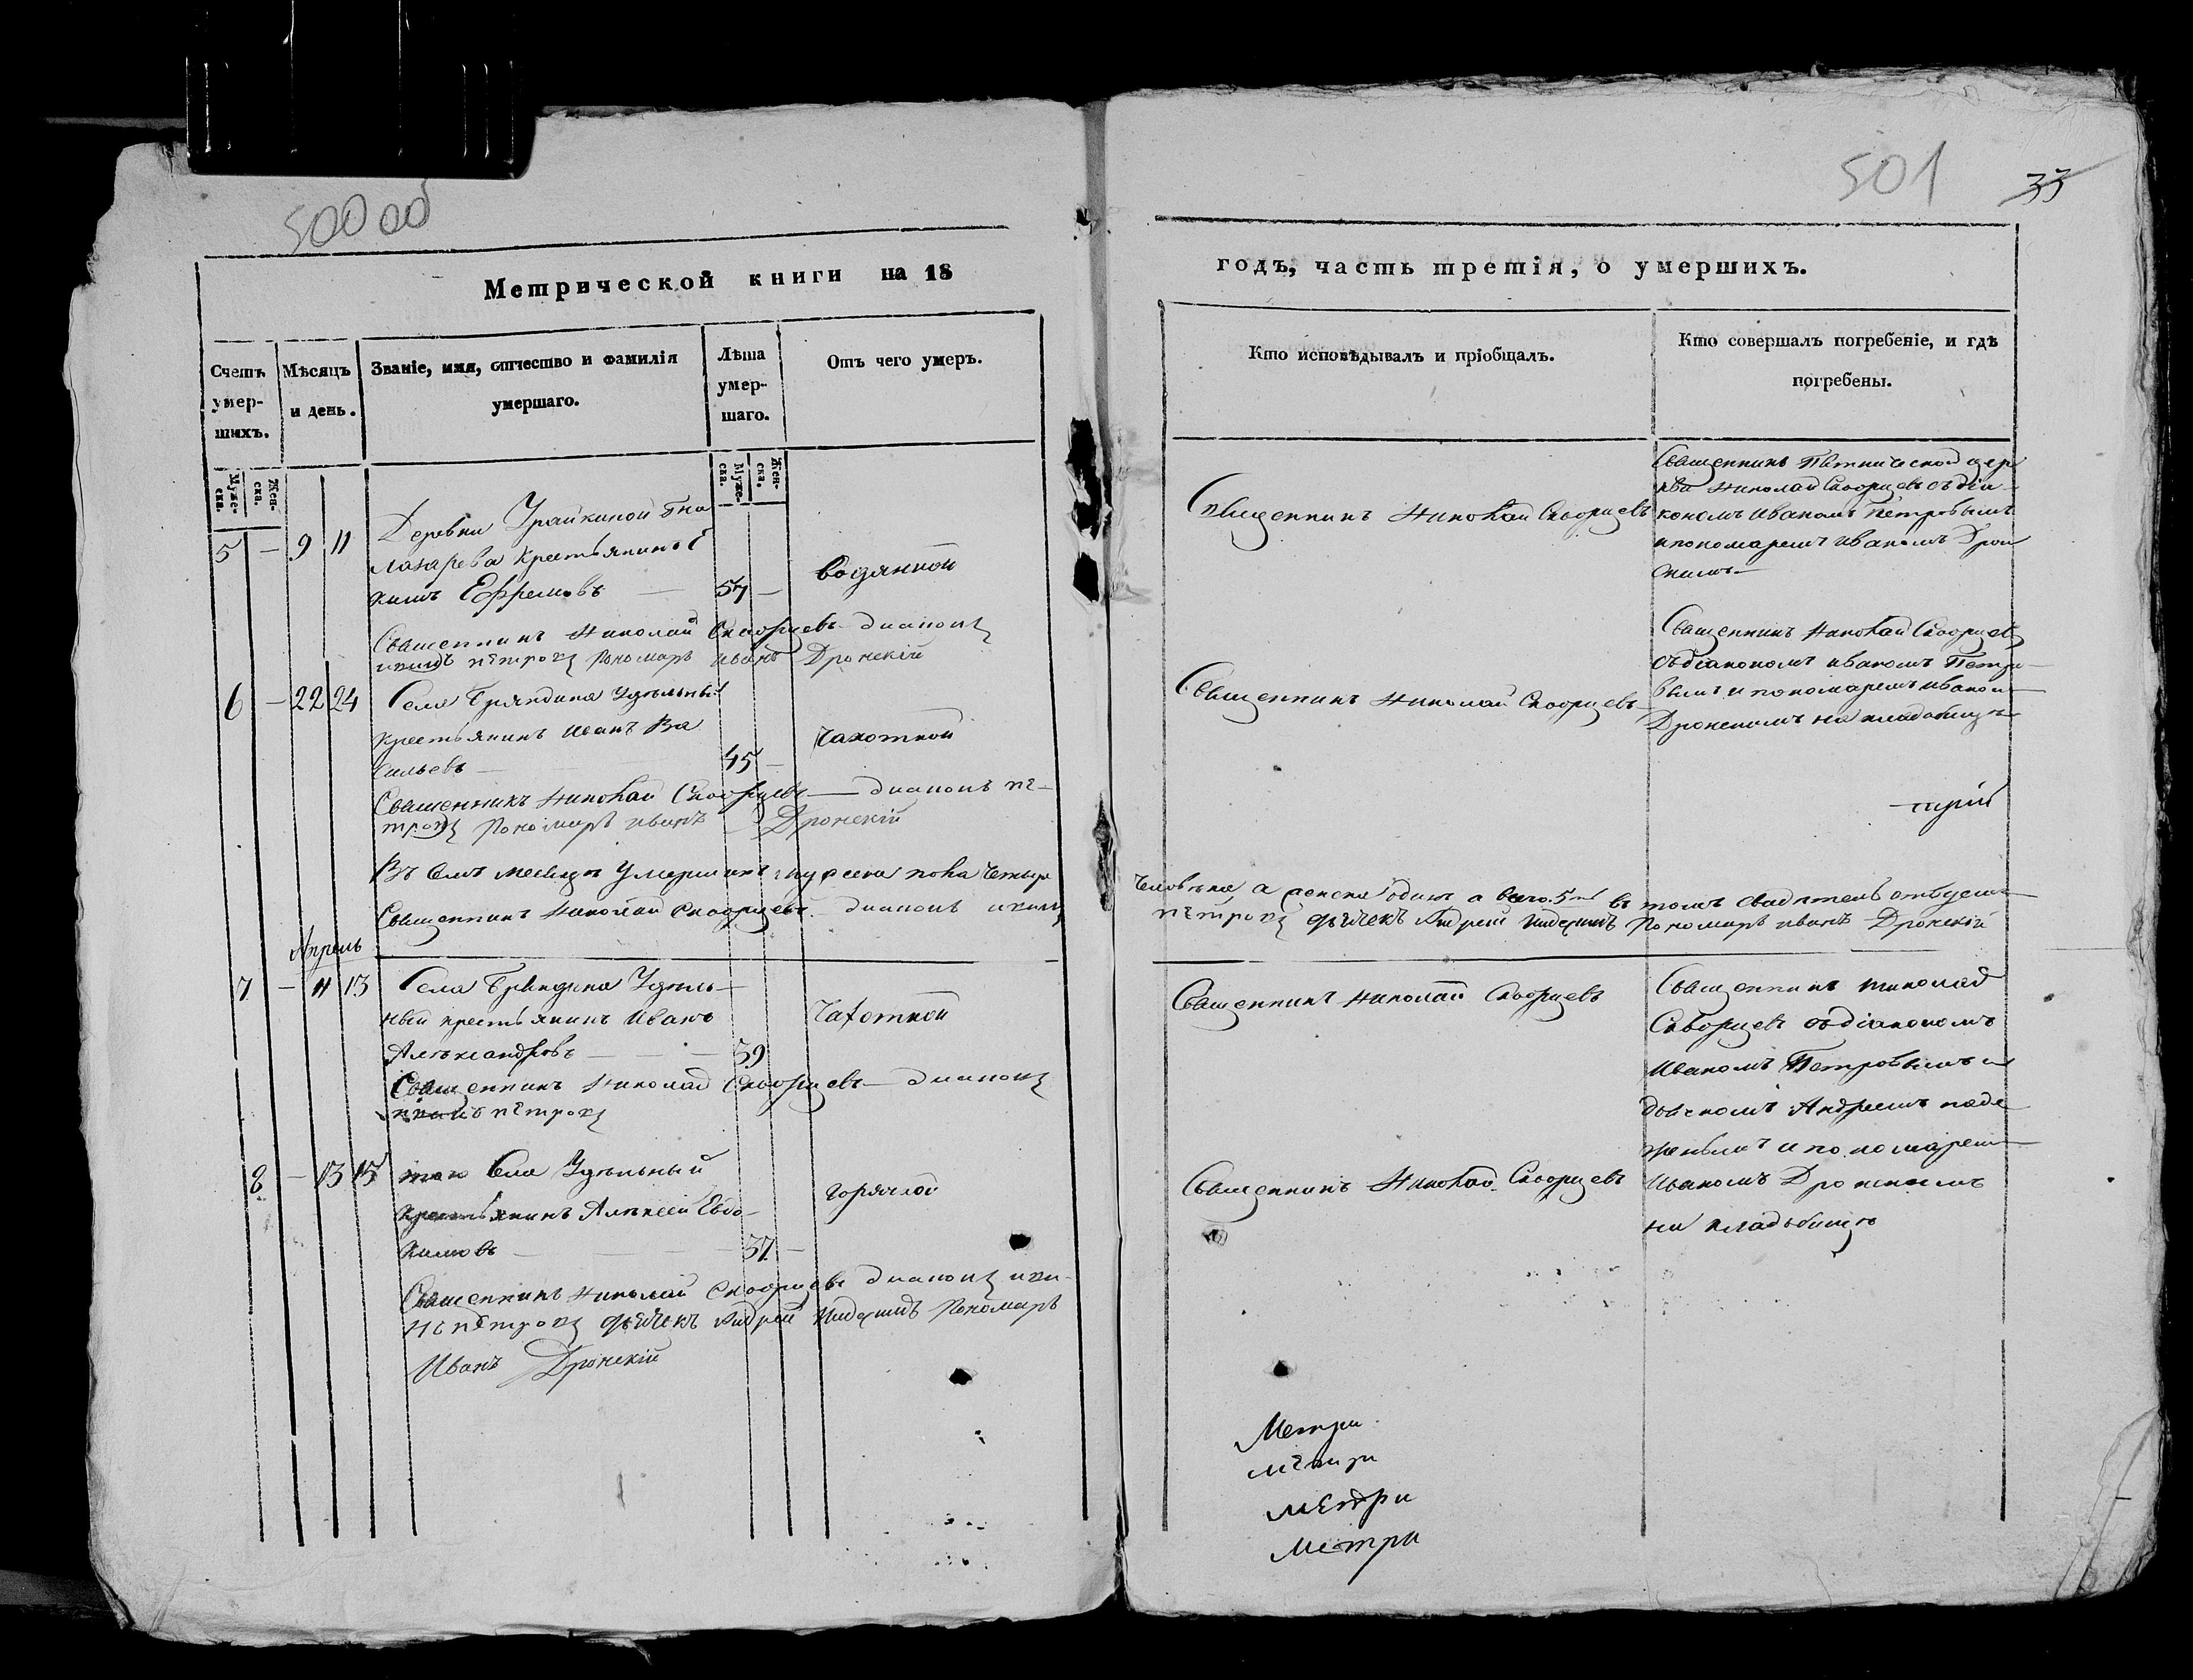 500 об
501
33
Метрической книги на 18
годъ, часть третія, о умершихъ.
Счетъ умер-шихъ.
Мѣсяцъ и день.
Званіе, имя, отчество и фамилія умершаго.
Лѣта умер-шаго.
Отъ чего умеръ.
Кто исповѣдывалъ и пріобщалъ.
Кто совершалъ погребеніе, и гдѣ погребены.
Муже-ска.
Жен-ска.
Муже-ска.
Жен-ска.
5 — 9 11
Деревни Урайкиной
Лазарева крестьянинъ
кимъ Ефремовъ — 57 —
водянкой
Священникъ Николай Скворцевъ
Священникъ
Николай Скворцевъ съ діа-
кономъ Иваномъ Петровымъ
и пономаремъ Иваномъ Дрон
скимъ —
Священникъ Николай Скворцевъ диаконъ
Петровъ Пономарь Иванъ Дронскій
6 — 22 24
Села Бряндина Удѣльный
крестьянинъ Иванъ Ва
сильевъ — 45 —
чахоткой
Священникъ Николай Скворцевъ
Священникъ Николай Скворцевъ
съ діакономъ Иваномъ Петро-
вымъ и пономаремъ Иваномъ
Дронскимъ на кладбищѣ
Священникъ Николай Скворцевъ — диаконъ Пе-
тровъ Пономарь Иванъ Дронскій
Въ семъ месяцѣ умершихъ мужеска пола четыре
человѣка а женска одинъ а всего 5 въ томъ свидѣтельствуемъ
Священникъ Николай Скворцевъ диаконъ
Петровъ дьячекъ Андрей Пономарь Иванъ Дронскій
Апрель
7 — 11 13
Села Бряндина Удѣль-
ный крестьянинъ Иванъ
Александровъ — — — 59
чахоткой
Священникъ Николай Скворцевъ
Священникъ Николай
Скворцевъ съ діакономъ
Иваномъ Петровымъ и
дьячкомъ Андреемъ
и пономаремъ
Иваномъ Дронскимъ
на кладьбищѣ
Священникъ Николай Скворцевъ — диаконъ
Петровъ
8 — 13 15
того села Удѣльный
крестьянинъ Алексей Евдо-
кимовъ — — — 37 —
горячкой
Священникъ Николай Скворцевъ
Священникъ Николай Скворцевъ диаконъ
Петровъ дьячекъ Андрей Пономарь
Иванъ Дронскій
Метри
метри
метри
Метри